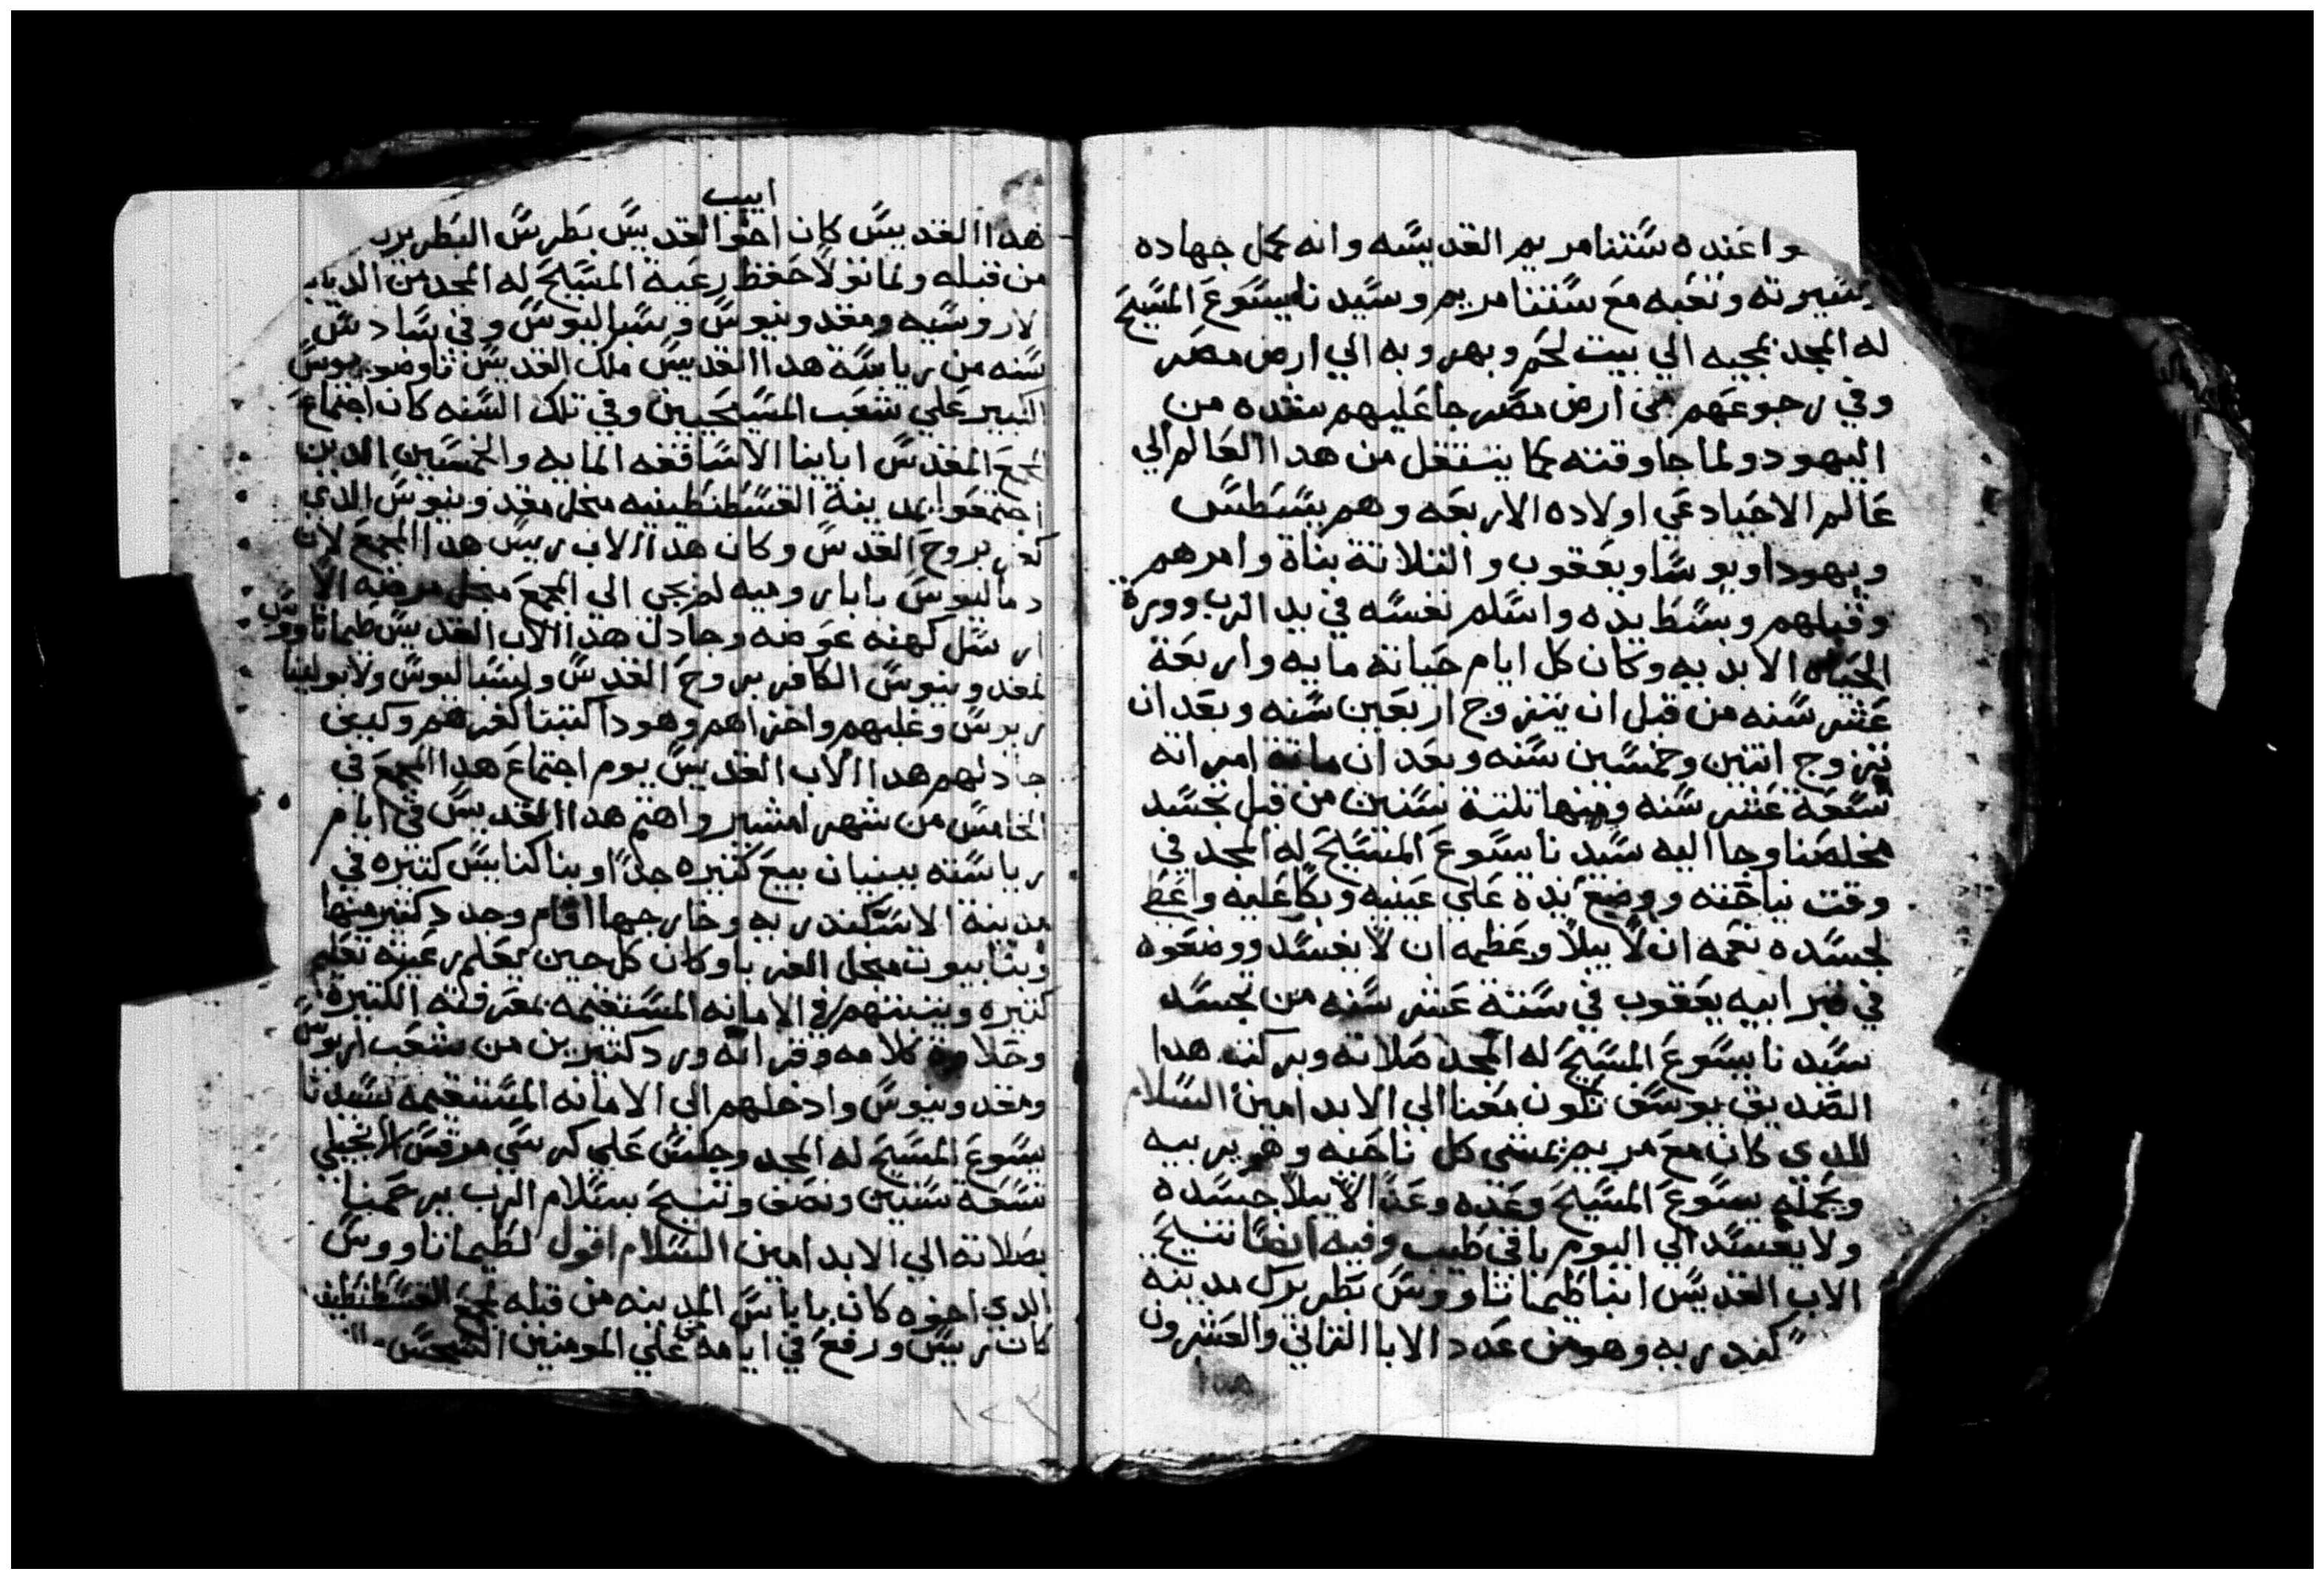 وا عنده ستنا مريم القديسه وانه كمل جهاده
وسيرته وتعبه مع ستنا مريم وسيدنا يسوع المسيح
له المجد بمجيه الي بيت لحم وبهروبه الي ارض مصر
وفي رجوعهم من ارض مصر جا عليهم من
اليهود ولما جا وقته لكما ينتقل من هدا العالم الي
عالم الاحيا دعي اولاده الاربعه وهم يسطس
ويهودا ويوسا ويعقوب والتلاتة بناة وامرهم
وقبلهم وبسط يده واسلم نفسه في يد الرب وورة
الحياه الابديه وكان كل ايام حياته مايه واربعة
عشر سنه من قبل ان يتزوج اربعين سنه وبعد ان
تزوج اتنين وخمسين سنه وبعد ان ماتة امراته
تسعة عشر سنه ومنها تلتة سنين من قبل تجسد
مخلصنا وجا اليه سيدنا يسوع المسيح له المجد في
وقت نياحته ووضع يده علي عينيه وبكا عليه واعط
لجسده نعمه ان لا يبلا وعظمه ان لا يفسد ووضعوه
في قبر ابيه يعقوب في ستة عشر سنه من تجسد
سيدنا يسوع المسيح له المجد صلاته وبركته هدا
الصديق يوسف تكون معنا الي الابد امين السلام
للدي كان مع مريم يمشي كل ناحيه وهو يربيه
ويحمله يسوع المسيح وعده وعدا لا يبلا جسده
ولا يفسد الي اليوم باقي طيب وفيه ايضا تنيح
الاب القديس انبا طيماتاووس بطريرك مدينه
كندريه وهو من عدد الابا التاني والعشرون
ابيب
هدا القديس كان اخوا القديس بطرس البطريرك
من قبله ولما تولا حفظ رعية المسيح له المجد من الدياب
لاروسيه ومقدونيوس وسباليوس وفي سادس
سنه من رياسة هدا القديس ملك القديس تاوضوسيوس
الكبير علي شعب المسيحيين وفي تلك السنه كان اجتماع
المجمع المقدس ابابنا الاساقفه المايه والخمسين الدين
اجتمعوا بمدينة القسطنطينيه منجل مقدونيوس الدي
كفر بروح القدس وكان هدا الاب ريس هدا المجمع لان
دماليوس بابا روميه لم يجي الي المجمع منجل مرضه الا
ارسل كهنه عوضه وجادل هدا الاب القديس طيماتاووس
لمقدونيوس الكافر بروح القدس ولسباليوس ولابوليناريوس
وغلبهم واخزاهم وهودا كتبنا كفرهم وكيف
جادلهم هدا الاب القديس يوم اجتماع هدا المجمع في
الخامس من شهر امشير واهتم هدا القديس في ايام
رياسته ببنيان بيع كتيره جدا وبنا كنايس كتيره في
مدينة الاسكندريه وخارجها اقام وجدد كتير منها
وبنا بيوت منجل الغربا وكان كل حين يعلم رعيته تعليم
كتيره ويتبتهم في الامانه المستقيمه بمعرفته الكتيرة
وحلاوة كلامه وقراته ورد كتيرين من شعب اريوس
ومقدونيوس وادخلهم الي الامانه المستقيمه لسيدنا
يسوع المسيح له المجد وجلس علي كرسي مرقس الانجيلي
تسعة سنين ونصف وتنيح بسلام الرب يرحمنا
بصلاته الي الابد امين السلام اقول لطيماتاووس
الدي اخوه كان باباس المدينه من قبله لمجمع القسطنطنيه
كان ريس ورفع في ايامه علي المومنين
١٢٣